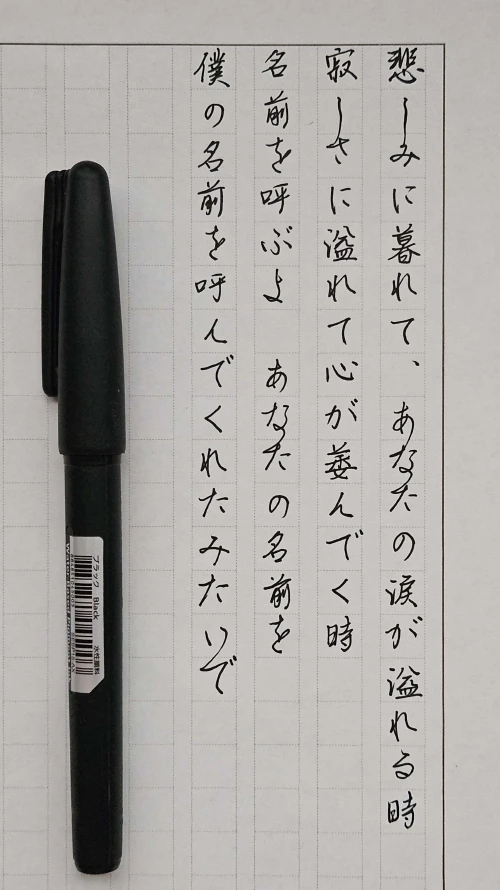 悲しみに暮れて、あなたの涙が溢れる時
寂しさに溢れて心が萎んでく時
名前を呼ぶよ　あなたの名前を
僕の名前を呼んでくれたみたいで
ブラック Black 水性顔料